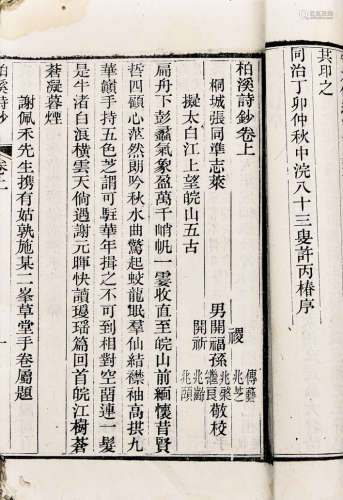 其印之
同治丁卯仲秋中浣八十三叟許丙椿序
柏溪詩鈔卷上
桐城張同準志萊
男開福孫
開祈
傳藝
兆芝
敬校
兆齡
擬太白江上望皖山五古
扁舟下彭蠡氣象盈萬千峭帆一霎收直至皖山前緬懷昔賢
哲四顧心茫然朗吟秋水曲驚起蛟龍眠羣仙結襟袖高拱九
華嶺手持五色芝謂可駐華年揖之不可到相對空留連一髮
是牛渚白浪橫雲天倘過謝元暉快讀瓊瑤篇回首皖江樹蒼
蒼凝暮煙
謝佩禾先生携有姑孰施某二峯草堂手卷屬題
柏溪詩鈔
卷上